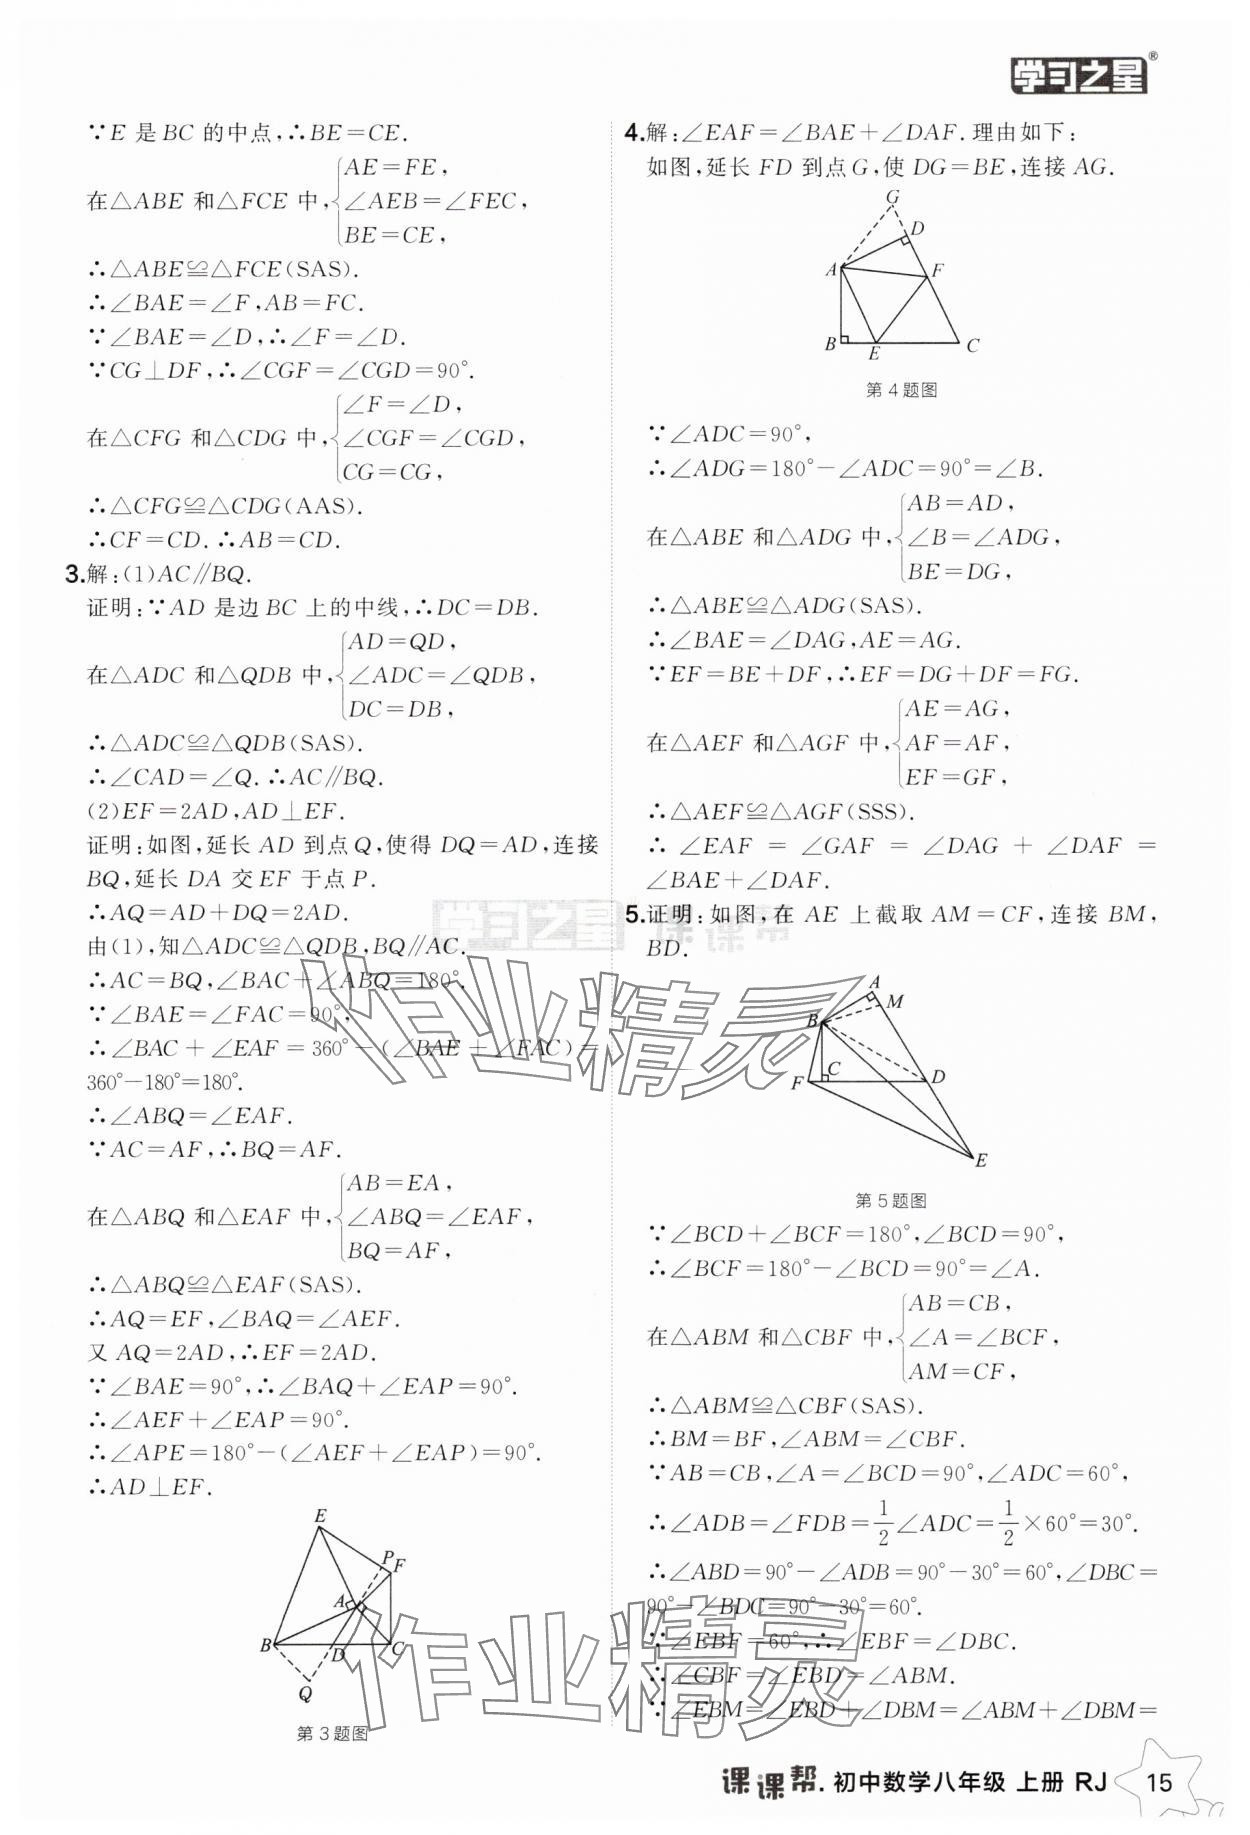 学习之星®
∵E 是 BC 的中点,∴BE=CE.
在△ABE 和△FCE 中,
AE=FE,
∠AEB=∠FEC,
BE=CE,
∴△ABE≌△FCE(SAS).
∴∠BAE=∠F,AB=FC.
∵∠BAE=∠D,∴∠F=∠D.
∵CG⊥DF,∴∠CGF=∠CGD=90°.
在△CFG 和△CDG 中,
∠F=∠D,
∠CGF=∠CGD,
CG=CG,
∴△CFG≌△CDG(AAS).
∴CF=CD. ∴AB=CD.
3.解:(1)AC∥BQ.
证明:∵AD 是边 BC 上的中线,∴DC=DB.
在△ADC 和△QDB 中,
AD=QD,
∠ADC=∠QDB,
DC=DB,
∴△ADC≌△QDB(SAS).
∴∠CAD=∠Q. ∴AC∥BQ.
(2)EF=2AD,AD⊥EF.
证明:如图,延长 AD 到点 Q,使得 DQ=AD,连接
BQ,延长 DA 交 EF 于点 P.
∴AQ=AD+DQ=2AD.
由(1),知△ADC≌△QDB,BQ∥AC.
∴AC=BQ,∠BAC+∠ABQ=180°.
∵∠BAE=∠FAC=90°,
∴∠BAC+∠EAF=360°-(∠BAE+∠FAC)=
360°-180°=180°.
∴∠ABQ=∠EAF.
∵AC=AF,∴BQ=AF.
在△ABQ 和△EAF 中,
AB=EA,
∠ABQ=∠EAF,
BQ=AF,
∴△ABQ≌△EAF(SAS).
∴AQ=EF,∠BAQ=∠AEF.
又 AQ=2AD,∴EF=2AD.
∵∠BAE=90°,∴∠BAQ+∠EAP=90°.
∴∠AEF+∠EAP=90°.
∴∠APE=180°-(∠AEF+∠EAP)=90°.
∴AD⊥EF.
E
P
F
A
B
D
C
Q
第3题图
4.解:∠EAF=∠BAE+∠DAF.理由如下:
如图,延长 FD 到点 G,使 DG=BE,连接 AG.
G
D
A
F
B
E
C
第4题图
∵∠ADC=90°,
∴∠ADG=180°-∠ADC=90°=∠B.
在△ABE 和△ADG 中,
AB=AD,
∠B=∠ADG,
BE=DG,
∴△ABE≌△ADG(SAS).
∴∠BAE=∠DAG,AE=AG.
∵EF=BE+DF,∴EF=DG+DF=FG.
在△AEF 和△AGF 中,
AE=AG,
AF=AF,
EF=GF,
∴△AEF≌△AGF(SSS).
∴∠EAF=∠GAF=∠DAG+∠DAF=
∠BAE+∠DAF.
5.证明:如图,在 AE 上截取 AM=CF,连接 BM,
BD.
A
M
B
C
F
D
E
第5题图
∵∠BCD+∠BCF=180°,∠BCD=90°,
∴∠BCF=180°-∠BCD=90°=∠A.
在△ABM 和△CBF 中,
AB=CB,
∠A=∠BCF,
AM=CF,
∴△ABM≌△CBF(SAS).
∴BM=BF,∠ABM=∠CBF.
∵AB=CB,∠A=∠BCD=90°,∠ADC=60°,
∴∠ADB=∠FDB=1/2∠ADC=1/2×60°=30°.
∴∠ABD=90°-∠ADB=90°-30°=60°,∠DBC=
90°-∠BDC=90°-30°=60°.
∵∠EBF=60°,∴∠EBF=∠DBC.
∴∠CBF=∠EBD=∠ABM.
∵∠EBM=∠EBD+∠DBM=∠ABM+∠DBM=
学习之星 课课帮
作业精灵
作业精灵
课课帮.初中数学八年级 上册 RJ
15